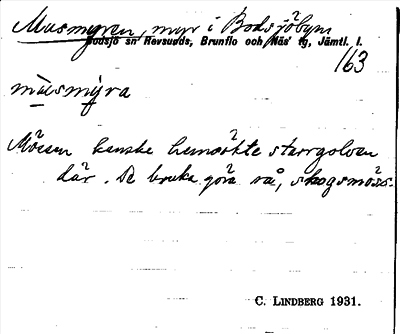 Musmyren, myr i Bodsjöbyn
Bodsjö sn Revsunds, Brunflo och Näs' tg, Jämtl. l.
163
mùsmy̆ra
Mössen kanske hemsökte starrgolven
där. De bruka göra så, skogsmöss.
C. LINDBERG 1931.